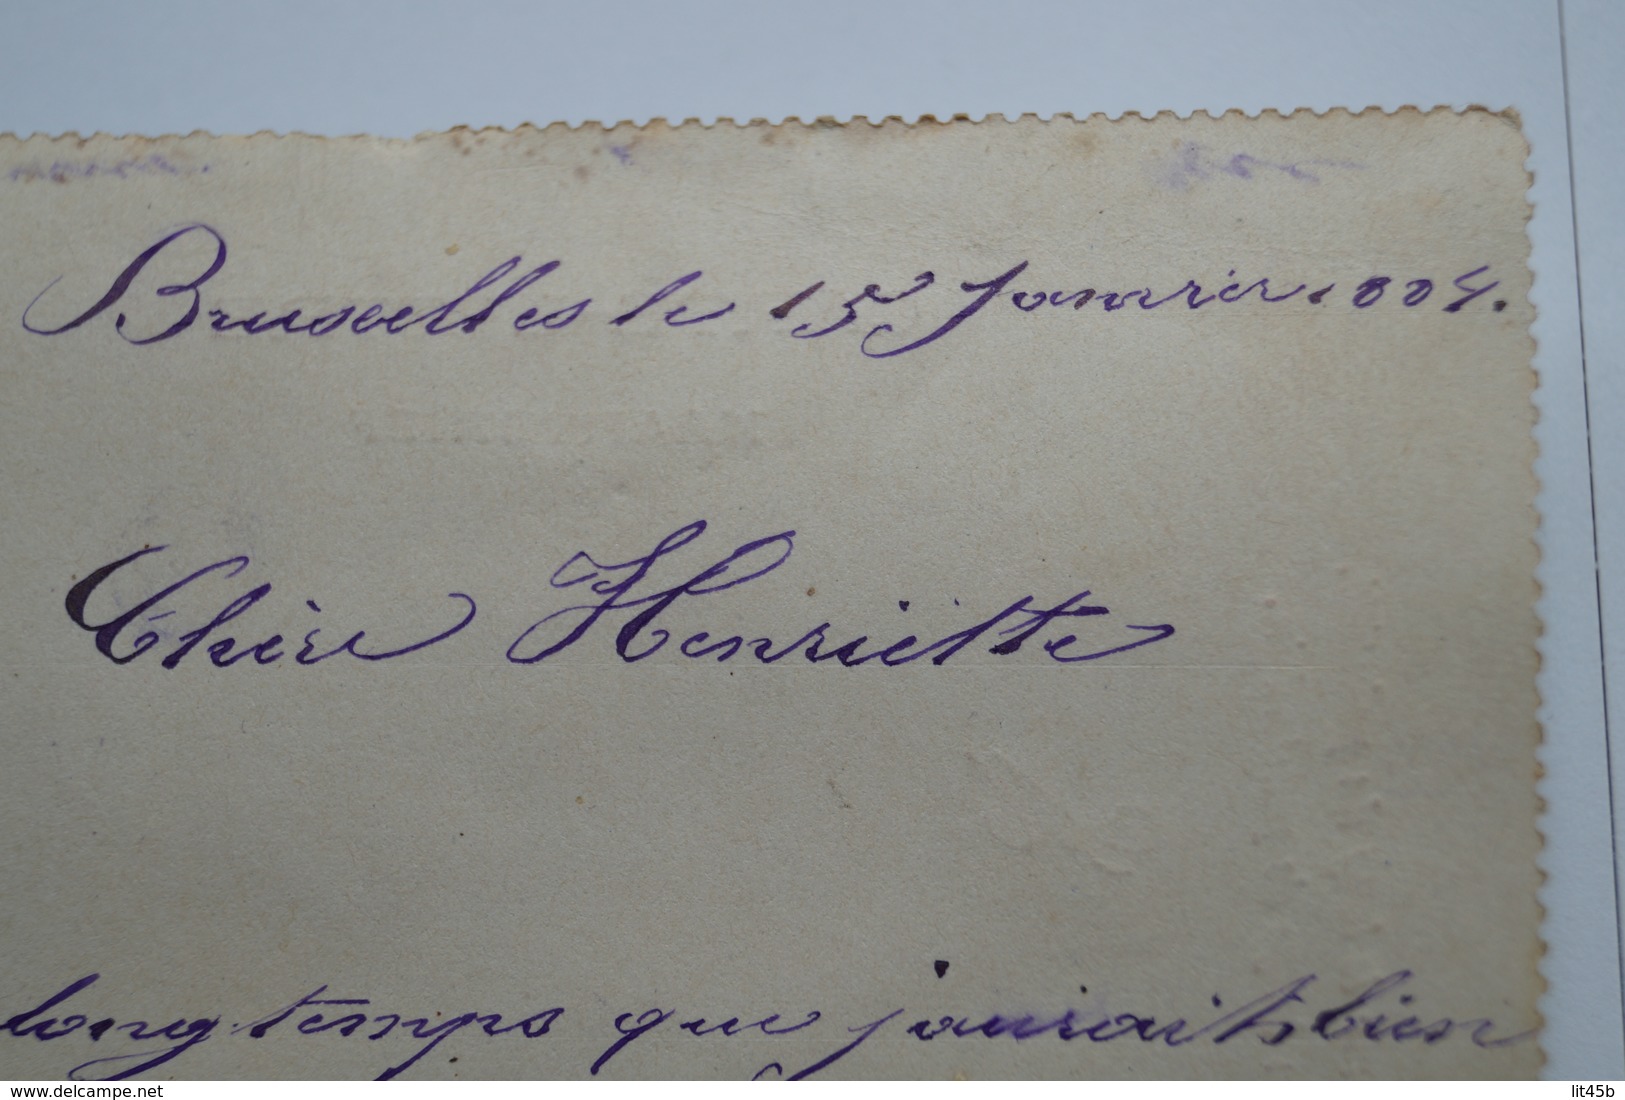 Bruxelles le 15 Janvier 1884.
Chère Henriette
longtemps que j'aurait bien
© delcampe.net
lit45b